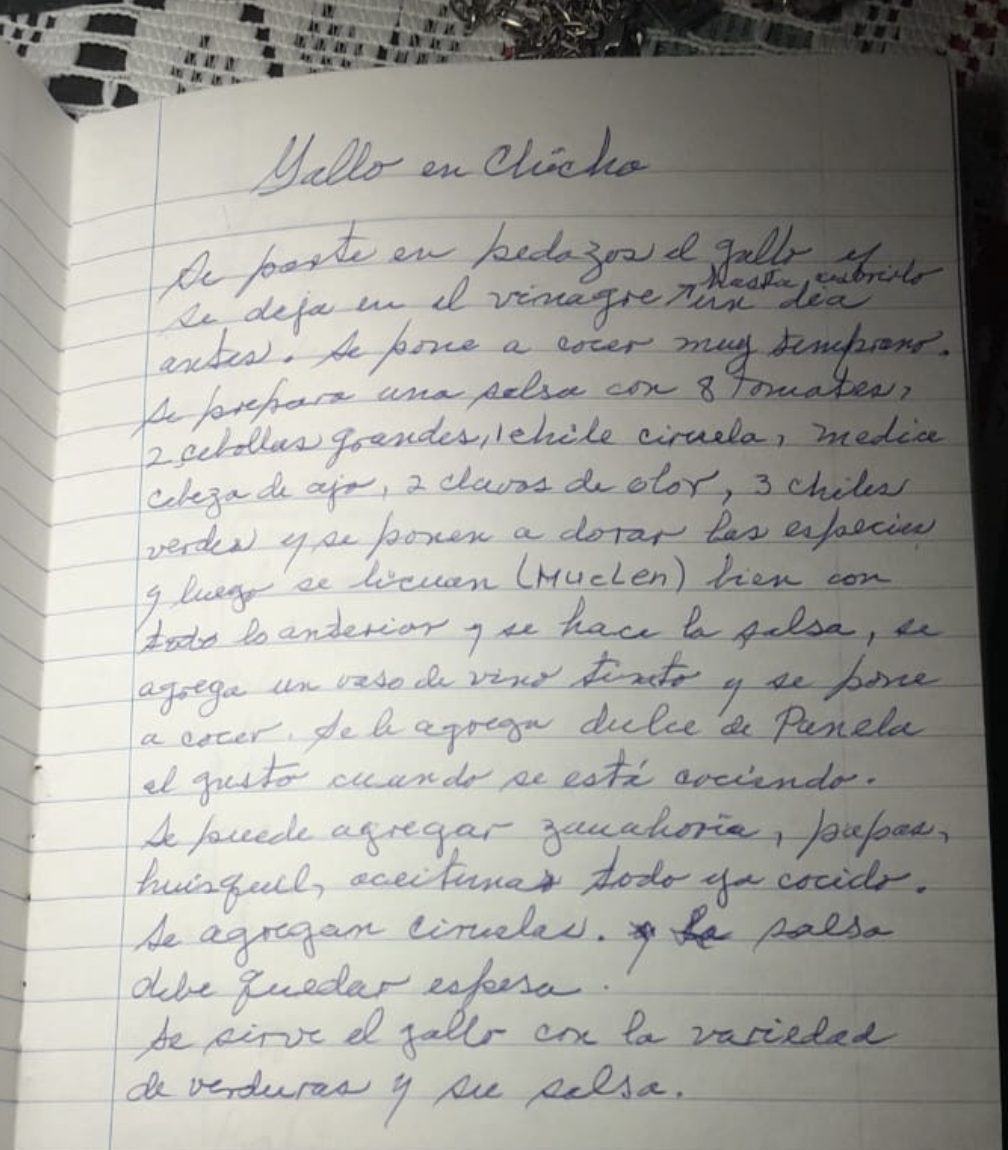 Gallo en Chicha
Se parte en pedazos el gallo y
se deja en el vinagre hasta cubrirlo un día
antes. Se pone a cocer muy temprano.
Se prepara una salsa con 8 tomates,
2 cebollas grandes, 1 chile ciruela, media
cabeza de ajo, 2 clavos de olor, 3 chiles
verdes y se ponen a dorar las especies
y luego se licuan (Muelen) bien con
todo lo anterior y se hace la salsa, se
agrega un vaso de vino tinto y se pone
a cocer. Se le agrega dulce de Panela
al gusto cuando se está cociendo.
Se puede agregar zanahoria, papas,
huisquil, aceitunas todo ya cocido.
Se agregan ciruelas. y la salsa
debe quedar espesa.
Se sirve el gallo con la variedad
de verduras y su salsa.